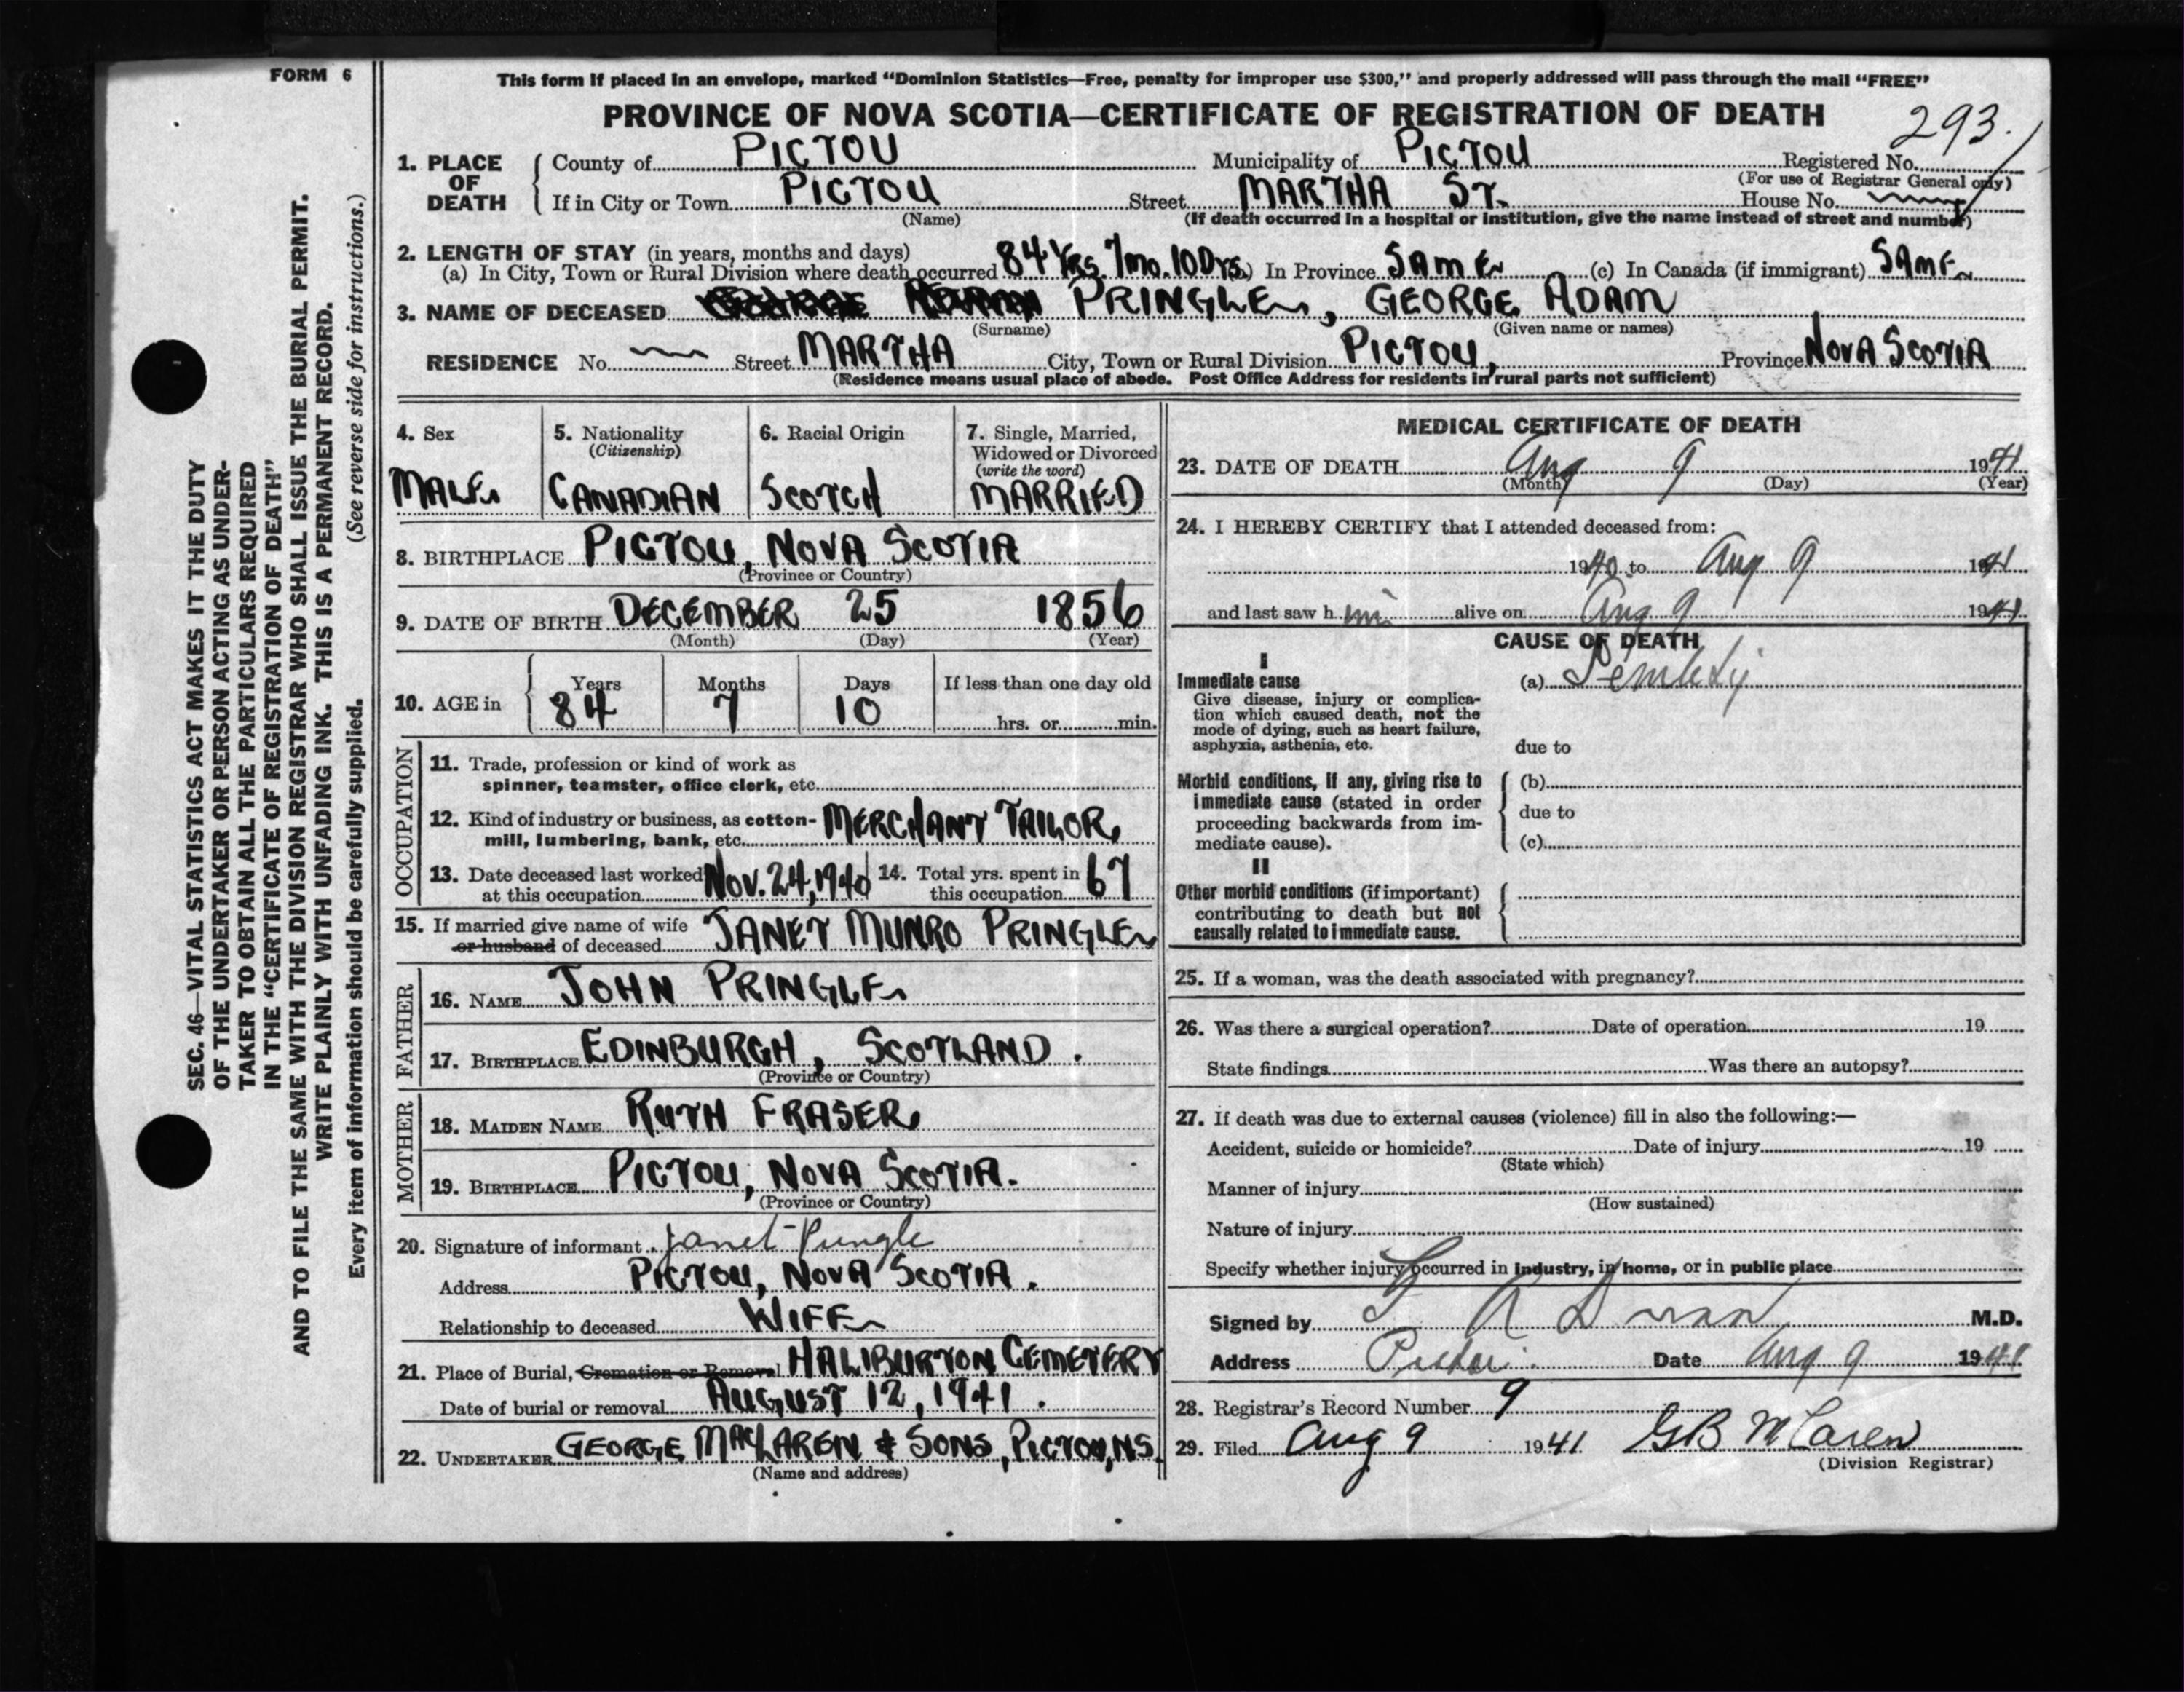 FORM 6
This form if placed in an envelope, marked “Dominion Statistics—Free, penalty for improper use $300,” and properly addressed will pass through the mail “FREE”
PROVINCE OF NOVA SCOTIA—CERTIFICATE OF REGISTRATION OF DEATH
293.
1. PLACE OF DEATH { County of PICTOU Municipality of PICTOU Registered No.
(For use of Registrar General only)
If in City or Town PICTOU Street MARTHA ST. House No.
(Name) (If death occurred in a hospital or institution, give the name instead of street and number)
2. LENGTH OF STAY (in years, months and days)
(a) In City, Town or Rural Division where death occurred 84 YRS. 7 MO. 10 DYS. In Province SAME (c) In Canada (if immigrant) SAME
3. NAME OF DECEASED PRINGLE, GEORGE ADAM
(Surname) (Given name or names)
RESIDENCE No. Street MARTHA City, Town or Rural Division PICTOU, Province NOVA SCOTIA
(Residence means usual place of abode. Post Office Address for residents in rural parts not sufficient)
4. Sex 5. Nationality 6. Racial Origin 7. Single, Married,
(Citizenship) Widowed or Divorced
(write the word)
MALE CANADIAN SCOTCH MARRIED
8. BIRTHPLACE PICTOU, NOVA SCOTIA
(Province or Country)
9. DATE OF BIRTH DECEMBER 25 1856
(Month) (Day) (Year)
10. AGE in { Years Months Days If less than one day old
84 7 10 hrs. or min.
OCCUPATION
11. Trade, profession or kind of work as
spinner, teamster, office clerk, etc.
12. Kind of industry or business, as cotton-
mill, lumbering, bank, etc. MERCHANT TAILOR
13. Date deceased last worked NOV. 24, 1940 14. Total yrs. spent in 67
at this occupation this occupation
15. If married give name of wife JANET MUNRO PRINGLE
or husband of deceased
FATHER
16. NAME JOHN PRINGLE
17. BIRTHPLACE EDINBURGH, SCOTLAND.
(Province or Country)
MOTHER
18. MAIDEN NAME RUTH FRASER
19. BIRTHPLACE PICTOU, NOVA SCOTIA.
(Province or Country)
20. Signature of informant Janet Pringle
Address PICTOU, NOVA SCOTIA.
Relationship to deceased WIFE
21. Place of Burial, Cremation or Removal HALIBURTON CEMETERY
Date of burial or removal AUGUST 12, 1941.
22. UNDERTAKER GEORGE MACLAREN & SONS, PICTOU, NS.
(Name and address)
MEDICAL CERTIFICATE OF DEATH
23. DATE OF DEATH Aug 9 1941
(Month) (Day) (Year)
24. I HEREBY CERTIFY that I attended deceased from:
1940 to Aug 9 1941
and last saw him alive on Aug 9 1941
CAUSE OF DEATH
I
Immediate cause (a)
Give disease, injury or complica-
tion which caused death, not the
mode of dying, such as heart failure,
asphyxia, asthenia, etc. due to
Morbid conditions, if any, giving rise to (b)
immediate cause (stated in order due to
proceeding backwards from im-
mediate cause). (c)
II
Other morbid conditions (if important)
contributing to death but not
causally related to immediate cause.
25. If a woman, was the death associated with pregnancy?
26. Was there a surgical operation? Date of operation 19
State findings Was there an autopsy?
27. If death was due to external causes (violence) fill in also the following:—
Accident, suicide or homicide? Date of injury 19
(State which)
Manner of injury
(How sustained)
Nature of injury
Specify whether injury occurred in industry, in home, or in public place
Signed by M.D.
Address Pictou Date Aug 9 1941
28. Registrar’s Record Number 9
29. Filed Aug 9 1941 GB McLaren
(Division Registrar)
SEC. 46—VITAL STATISTICS ACT MAKES IT THE DUTY
OF THE UNDERTAKER OR PERSON ACTING AS UNDER-
TAKER TO OBTAIN ALL THE PARTICULARS REQUIRED
IN THE “CERTIFICATE OF REGISTRATION OF DEATH”
AND TO FILE THE SAME WITH THE DIVISION REGISTRAR WHO SHALL ISSUE THE BURIAL PERMIT.
WRITE PLAINLY WITH UNFADING INK. THIS IS A PERMANENT RECORD.
Every item of information should be carefully supplied. (See reverse side for instructions.)